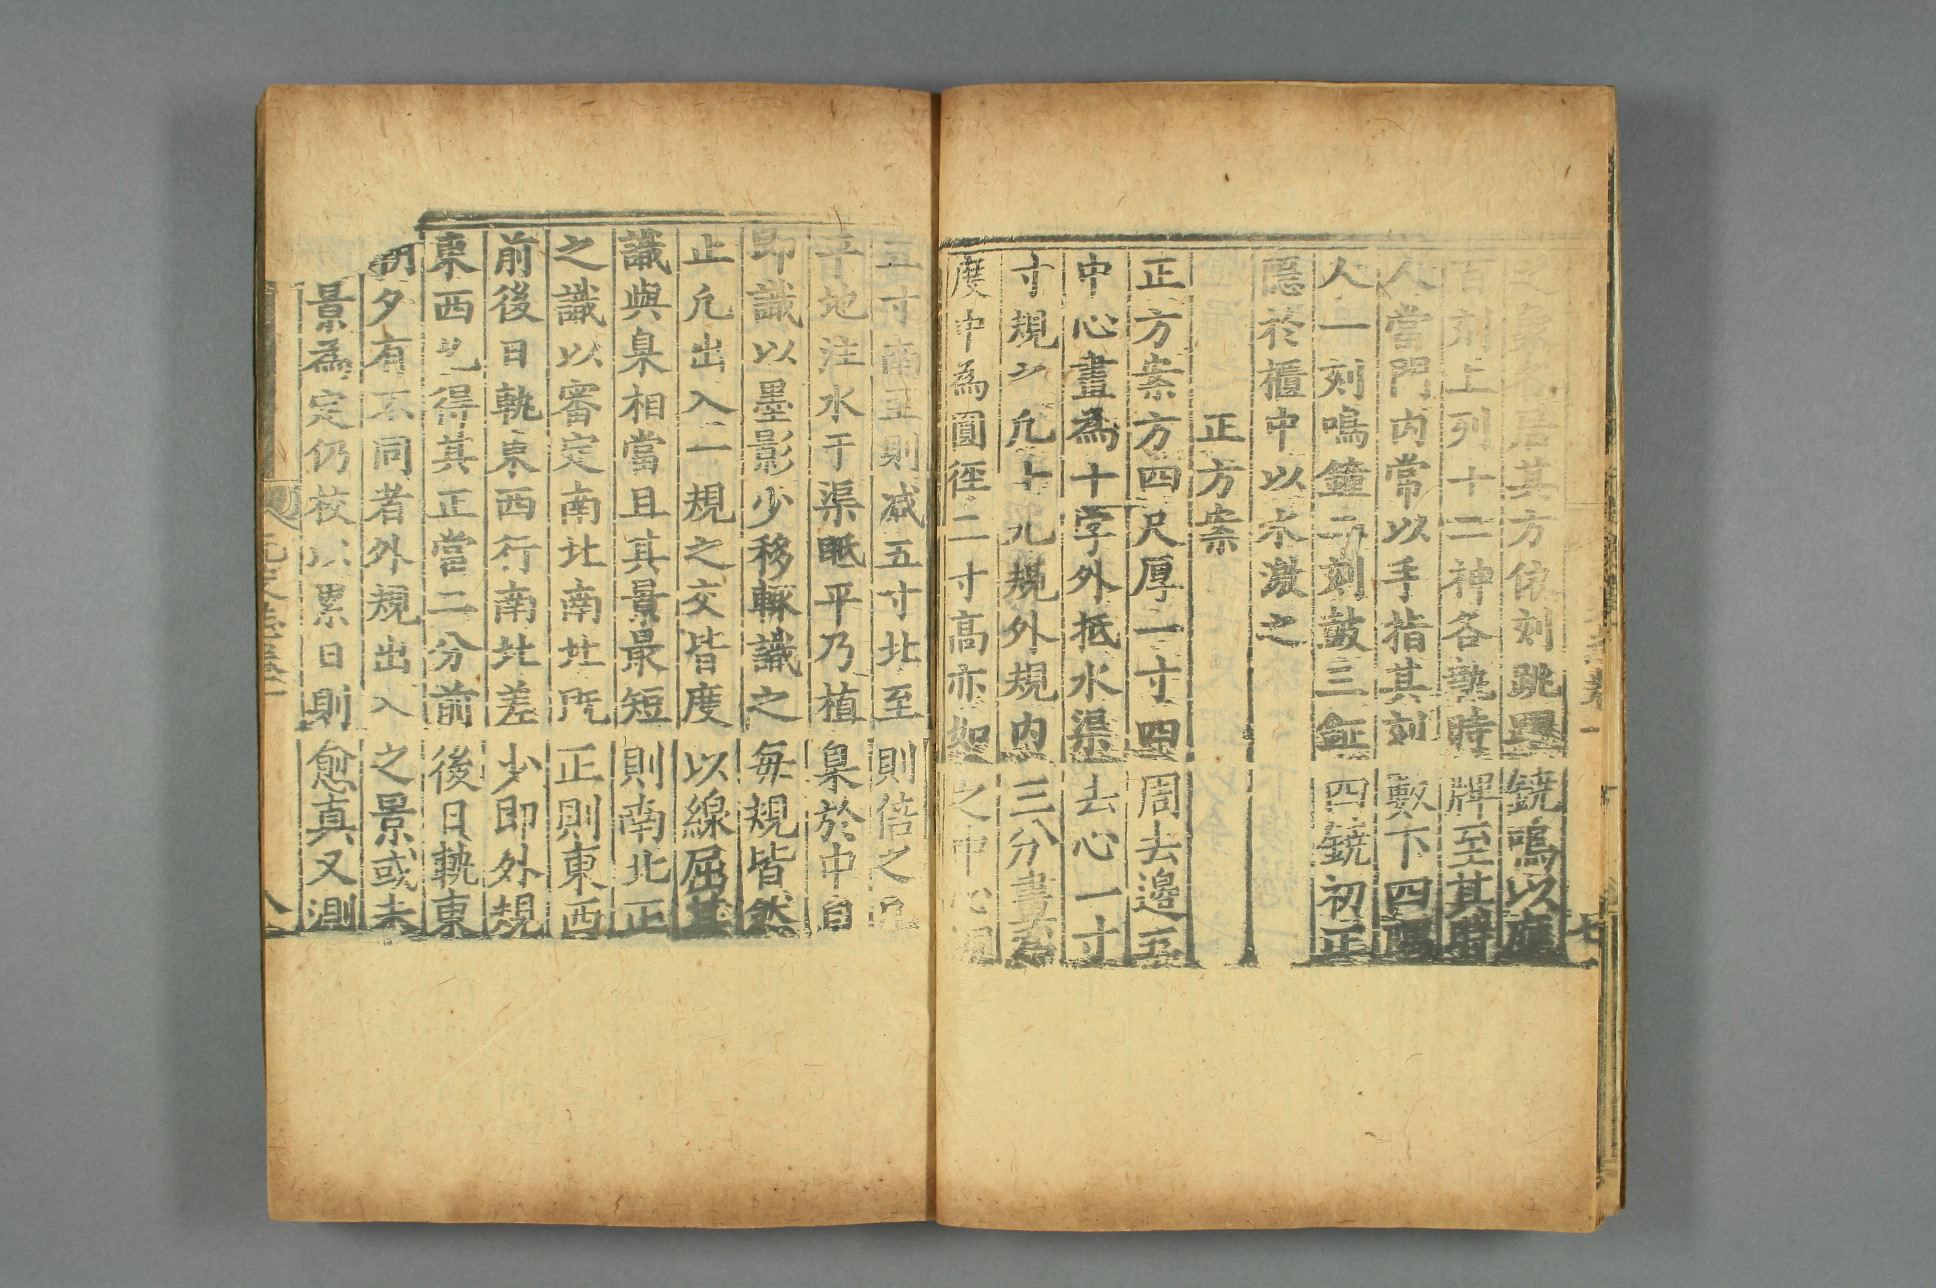 之象各居其方依刻跳躍鐃鳴以應
百刻上列十二神各執時牌至其時
人當門内常以手指其刻數下四隅
人一刻鳴鐘二刻鼓三鉦四鐃初正
隱於櫃中以水激之
正方案
正方案方四尺厚一寸四周去邊五
中心畫為十字外抵水渠去心一寸
寸規之凡十九規外規内三分畫為
度中為圓徑二寸高亦如之中心洞
五寸南至則減五寸北至則倍之
平地注水于渠眡平乃植臬於中自
即識以墨影少移輒識之每規皆然
止凡出入一規之交皆度以線屈其
識與臬相當且其景最短則南北正
之識以審定南北南北既正則東西
前後日軌東西行南北差少即外規
東西允得其正當二分前後日軌東
朝夕有不同者外規出入之景或未
景為定仍校以累日則愈真又測